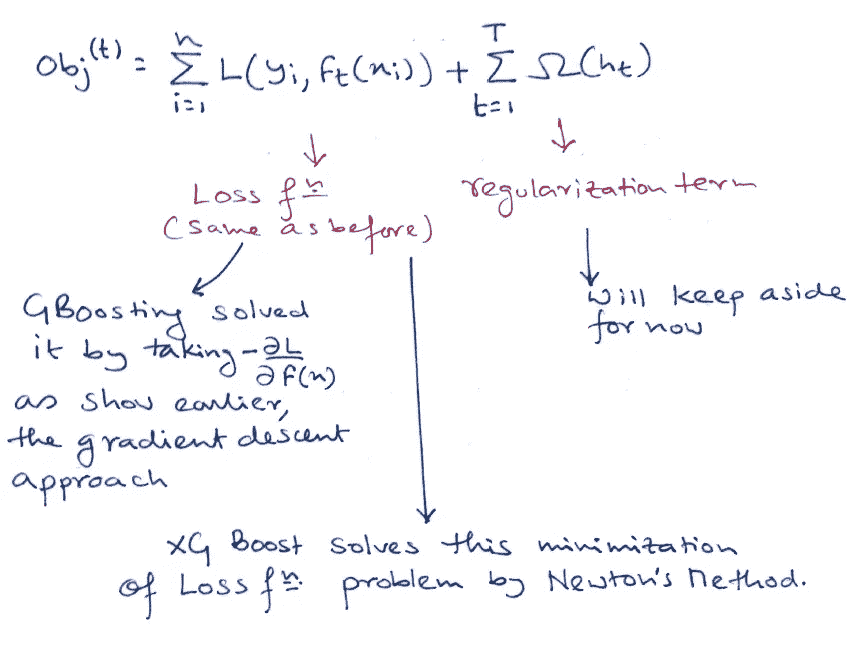 Obj^(t) = Σ_{i=1}^{n} L(yi, Ft(xi)) + Σ_{t=1}^{T} Ω(ht)
↓ ↓
Loss fn regularization term
(same as before)
GBoosting solved
it by taking -∂L/∂F(x)
as show earlier,
the gradient descent
approach
will keep aside
for now
XG Boost solves this minimization
of Loss fn problem by Newton's Method.